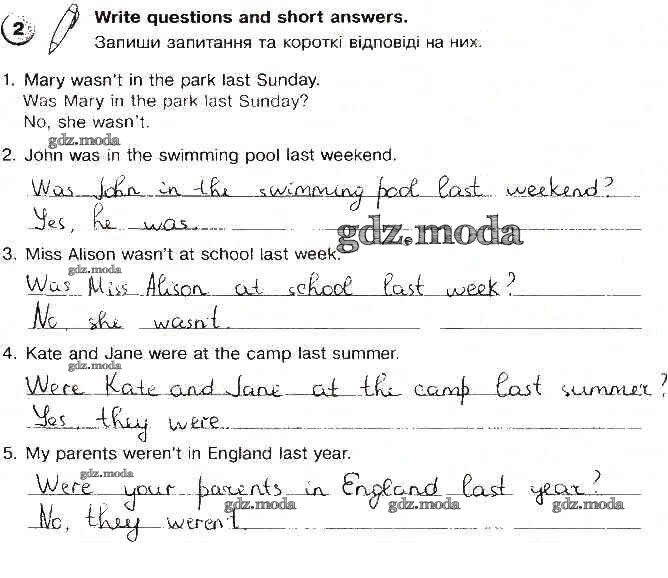 2 Write questions and short answers.
Запиши запитання та короткі відповіді на них.
1. Mary wasn't in the park last Sunday.
Was Mary in the park last Sunday?
No, she wasn't.
gdz.moda
2. John was in the swimming pool last weekend.
Was John in the swimming pool last weekend?
Yes, he was
gdz.moda
3. Miss Alison wasn't at school last week.
gdz.moda
Was Miss Alison at school last week?
No, she wasn't
4. Kate and Jane were at the camp last summer.
gdz.moda
Were Kate and Jane at the camp last summer?
Yes, they were
5. My parents weren't in England last year.
gdz.moda
Were your parents in England last year?
gdz.moda gdz.moda gdz.moda
No, they weren't